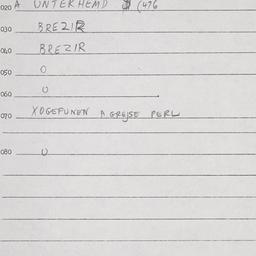 020 A UNTERHEMD $ (476
030 BREZIR
040 BREZIR
050 O
060 U
070 XOGEFUNEN A GREJSE PERL
080 U